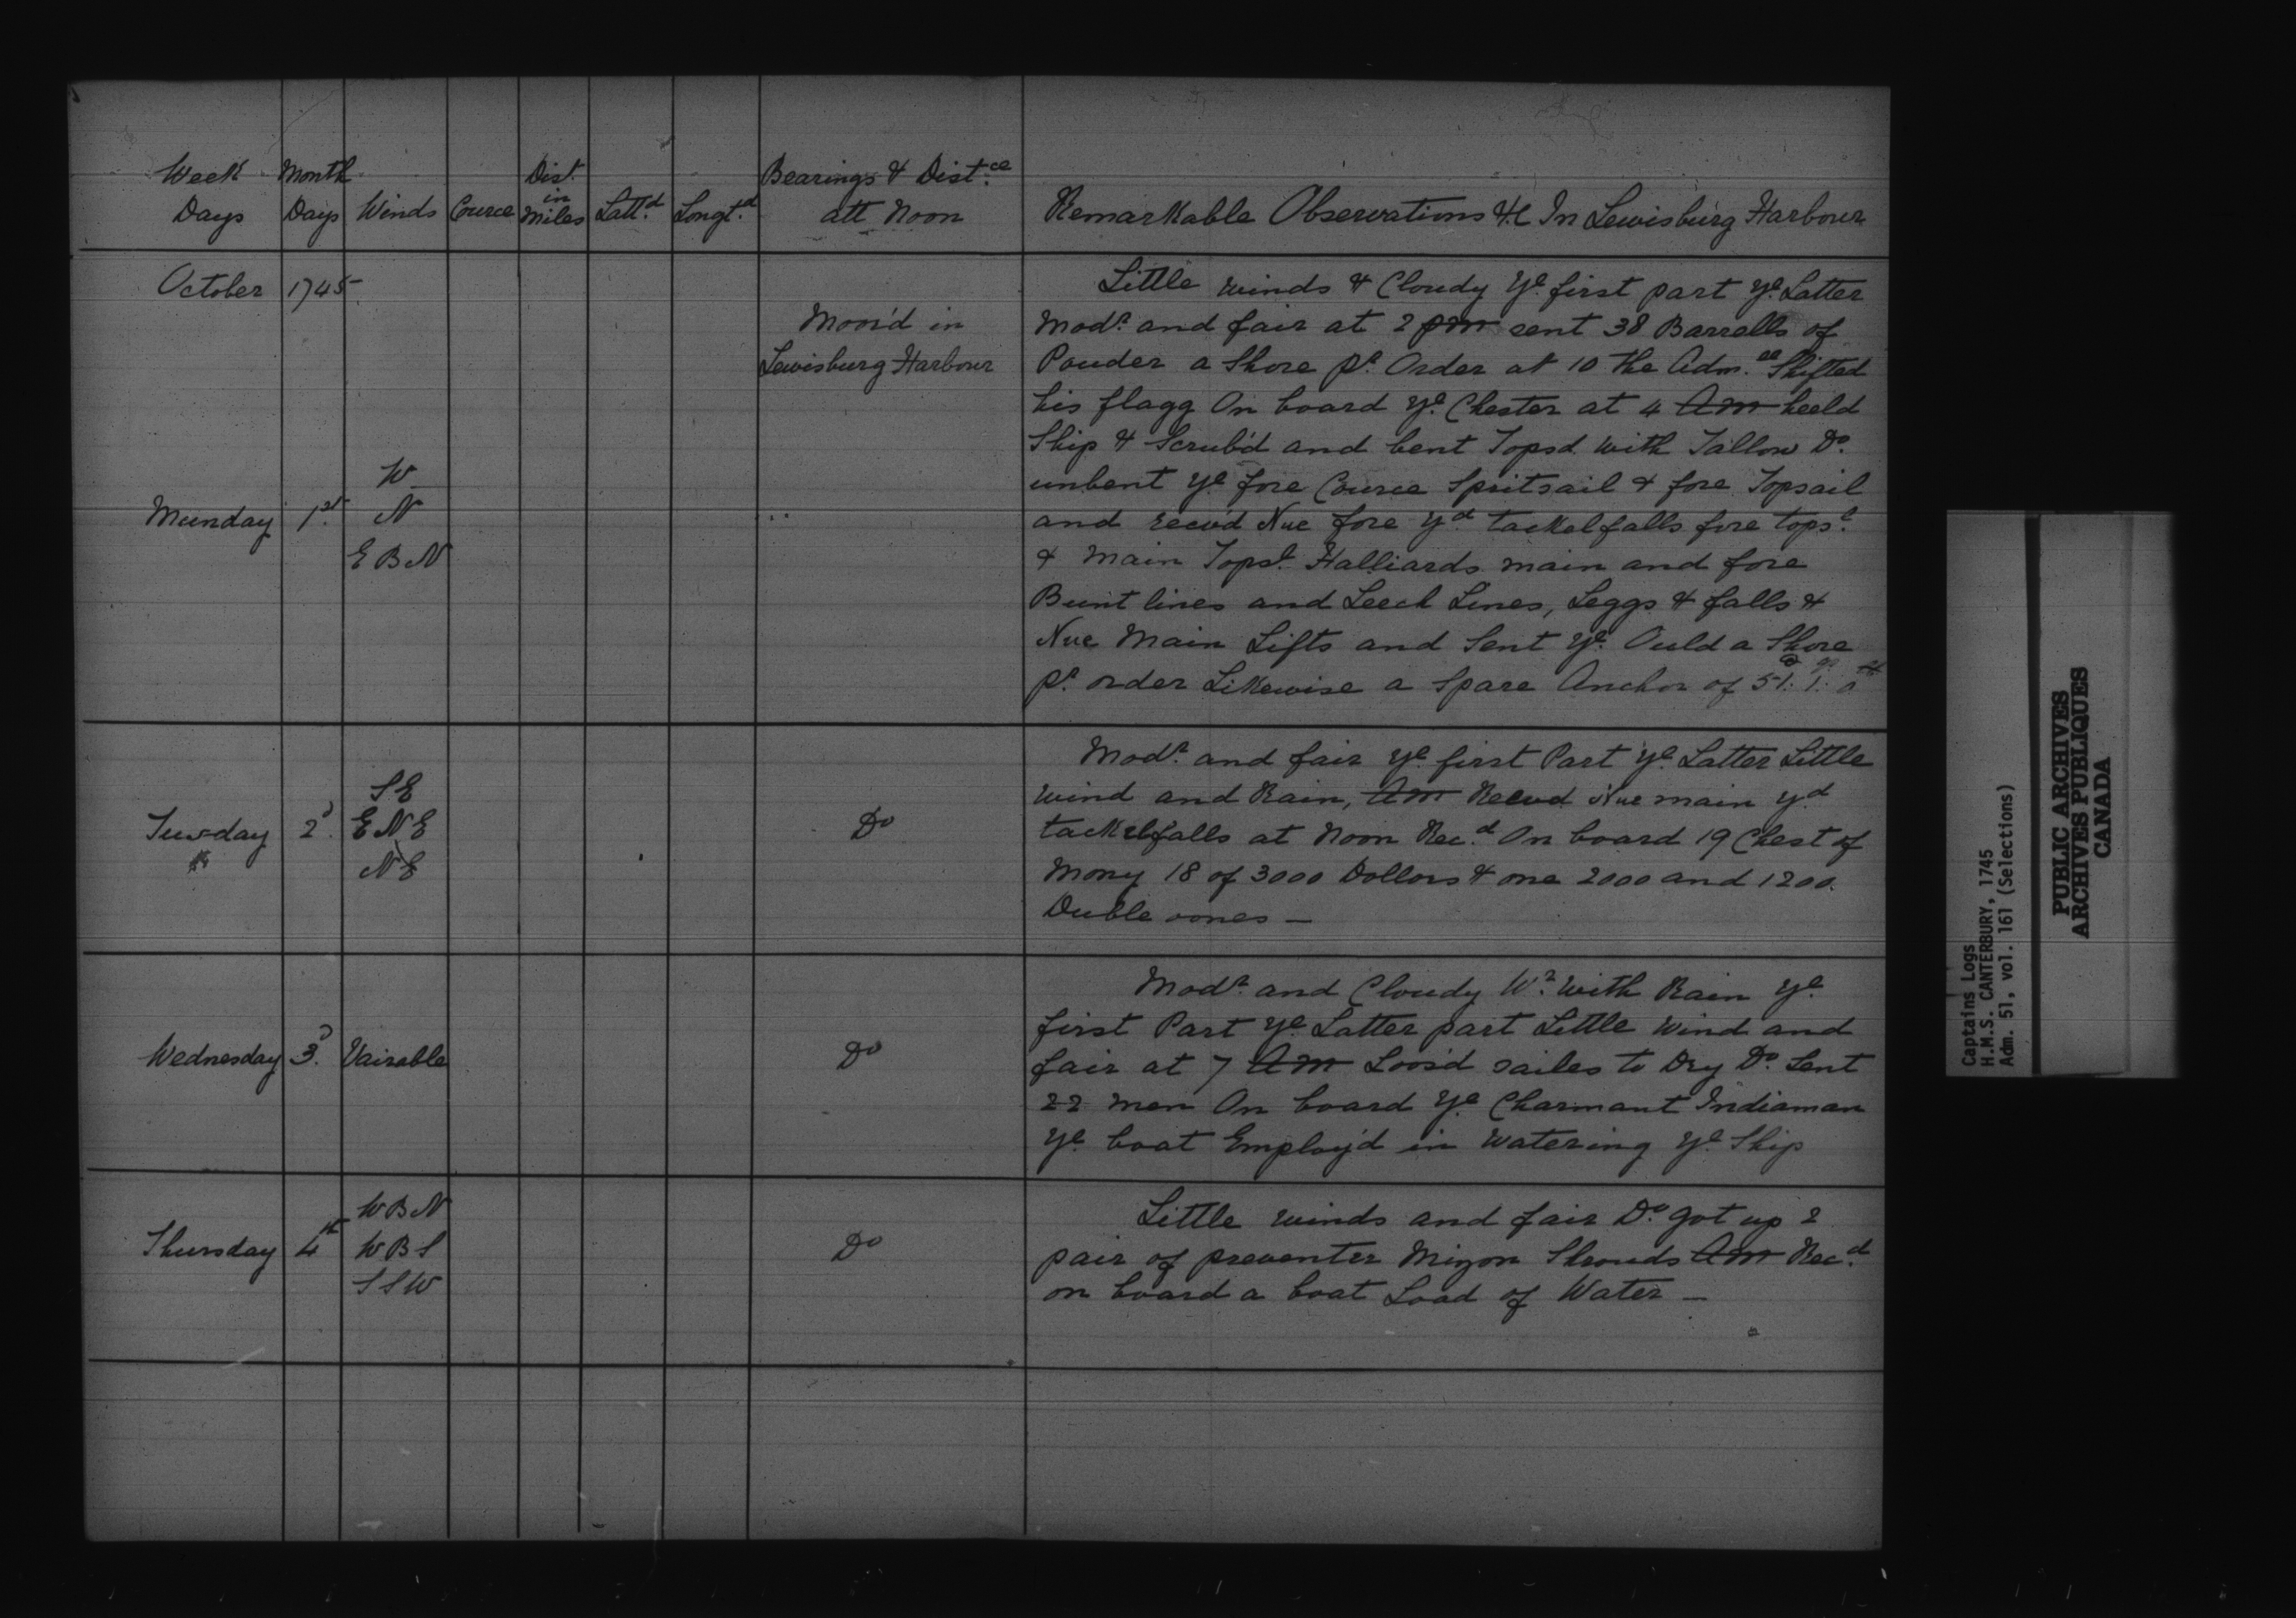 Week Days Month Days Winds Cource Dist. in Miles Latt.d Longt.d Bearings & Dist.ce att Noon Remarkable Observations &c In Lewisburg Harbour
October 1745
Moor'd in
Lewisburg Harbour
Munday 1st.
W
N
E B N
Little winds & Cloudy Ye. first part ye. Latter
Modr. and fair at 2 pm sent 38 Barrells of
Pouder a Shore pr. Order at 10 the Adm.ll Shifted
his flagg On board Ye. Chester at 4 Am heeld
Ship & Scrub'd and bent Topsd with Tallow Do.
unbent Ye. fore Cource Spritsail & fore Topsail
and reev'd Nue fore Yd tackelfalls fore tops.l
& Main Topsl. Halliards main and fore
Bunt lines and Leech Lines, Leggs & falls &
Nue Main Lifts and Sent Ye. Ould a Shore
pr. order Likewise a Spare Anchor of 51. 1. 0
Tusday 2d.
S E
E N E
N E
Do
Modr. and fair Ye. first Part Ye. Latter Little
wind and Rain, Am Reevd Nue main yd
tackelfalls at Noon Rec.d On board 19 Chest of
Mony 18 of 3000 Dollors & one 2000 and 1200
Duble oones —
Wednesday 3d. Vairable
Do
Modr. and Cloudy Wr. With Rain Ye.
first Part Ye. Latter part Little Wind and
fair at 7 Am Loos'd sailes to Dry Do. Sent
22 men On board Ye. Charmant Indiaman
Ye. boat Employ'd in Watering Ye. Ship
Thursday 4th
W B N
W B S
S S W
Do
Little winds and fair Do. got up 2
pair of preventer Mizon Shrouds Am Rec.d
on board a boat Load of Water —
Captains Logs
H.M.S. CANTERBURY, 1745
Adm. 51, vol. 161 (Selections)
PUBLIC ARCHIVES
ARCHIVES PUBLIQUES
CANADA